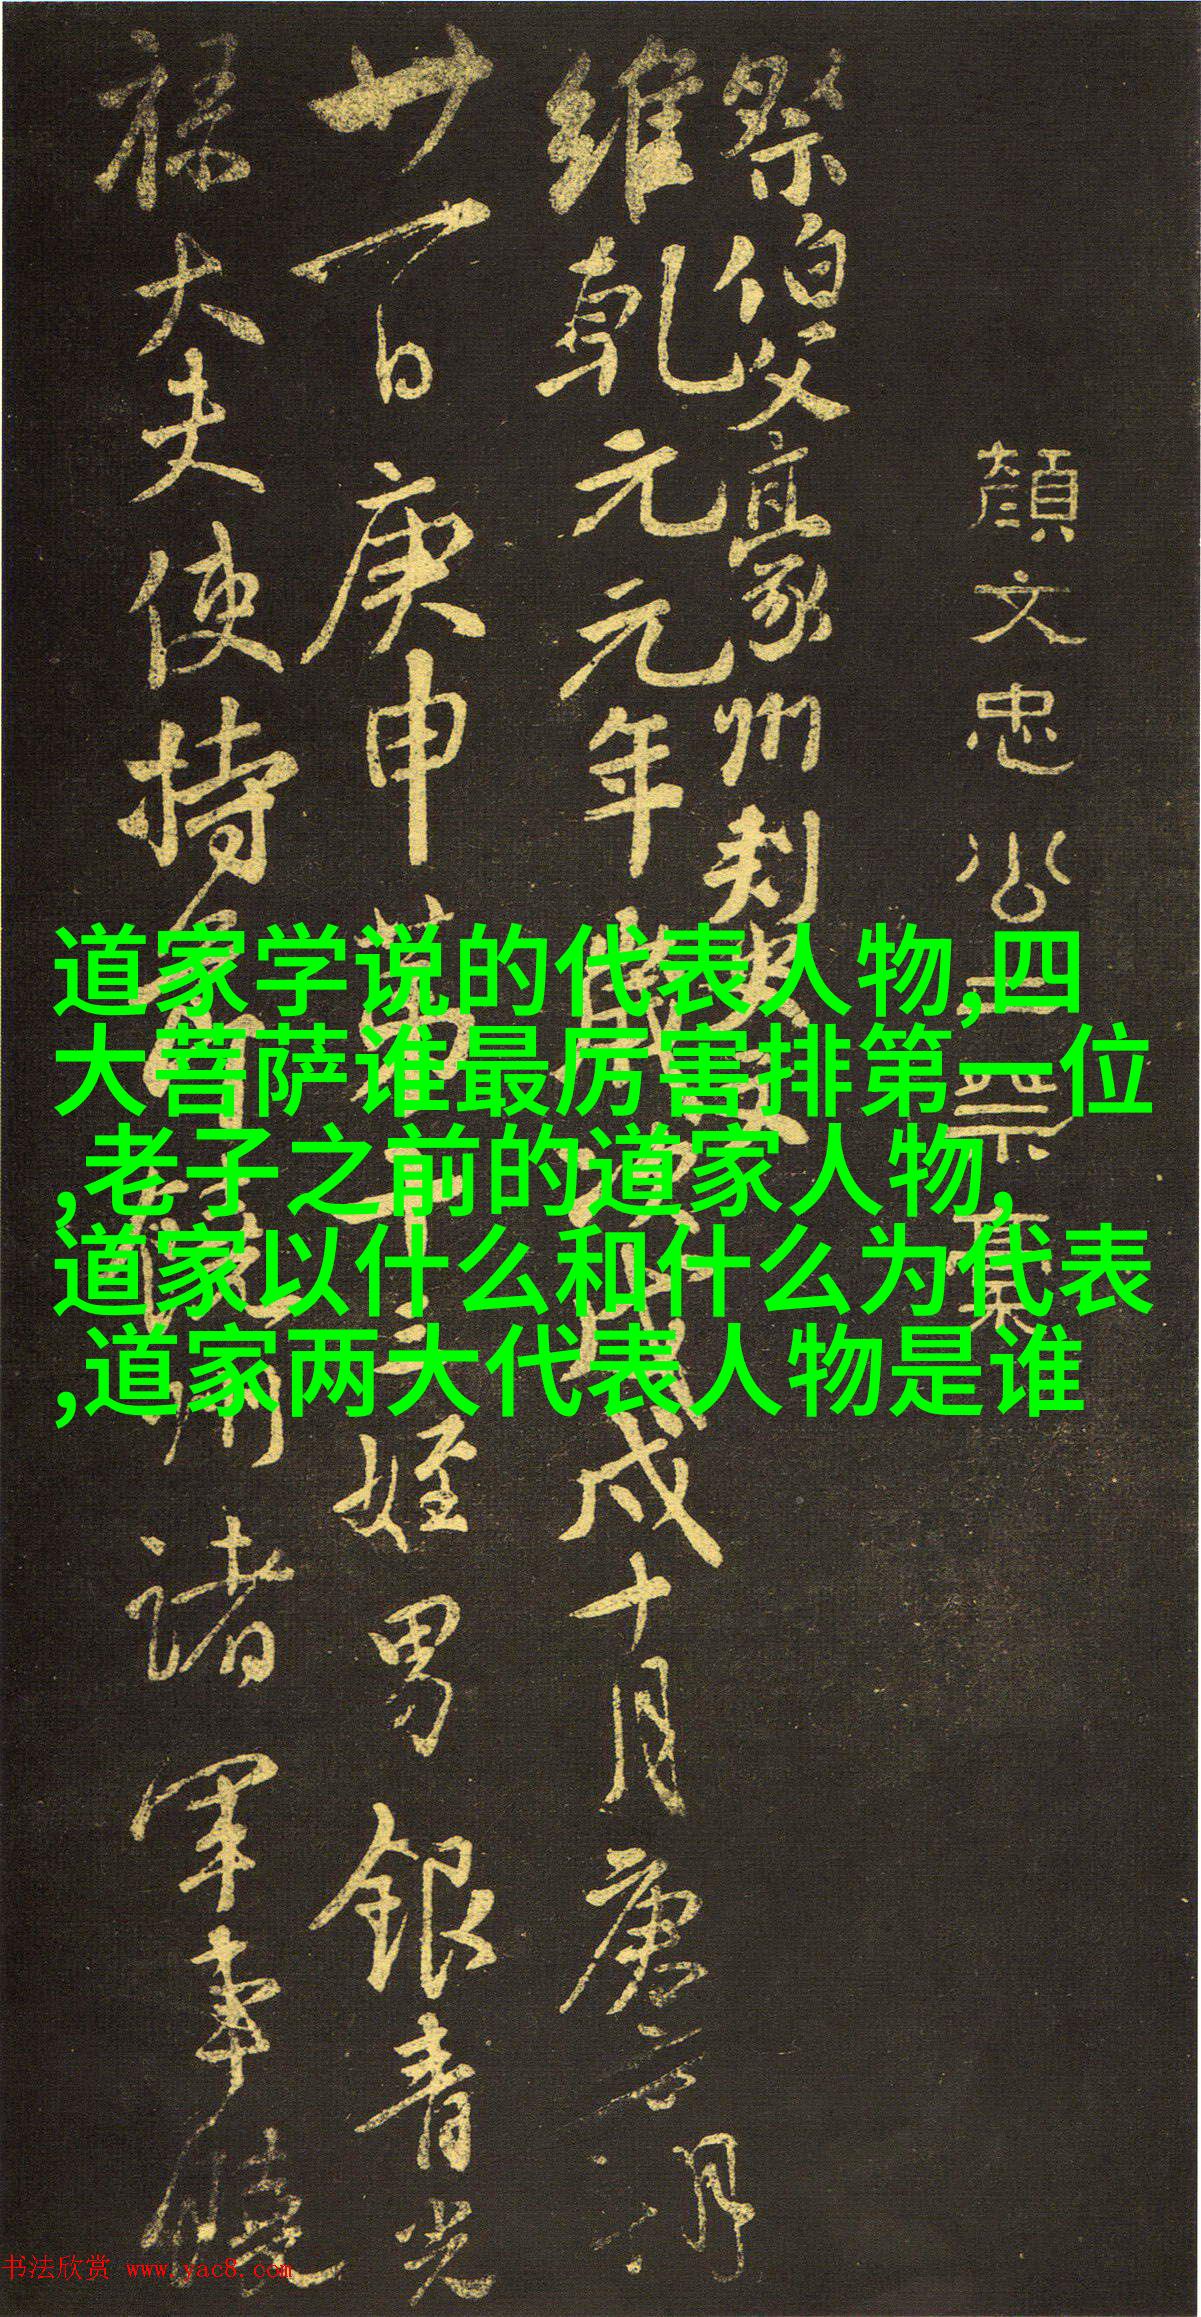 顏文忠公三祭藁
祭伯父豪州刺史文
維乾元元年歲次戊戌十月庚
廿一日庚申第十三姪男銀青光
祿大夫使持節饒州諸軍事饒
道家学说的代表人物,四
大菩萨谁最厉害排第一位
,老子之前的道家人物,
道家以什么和什么为代表
,道家两大代表人物是谁
书法欣赏 www.yac8.com